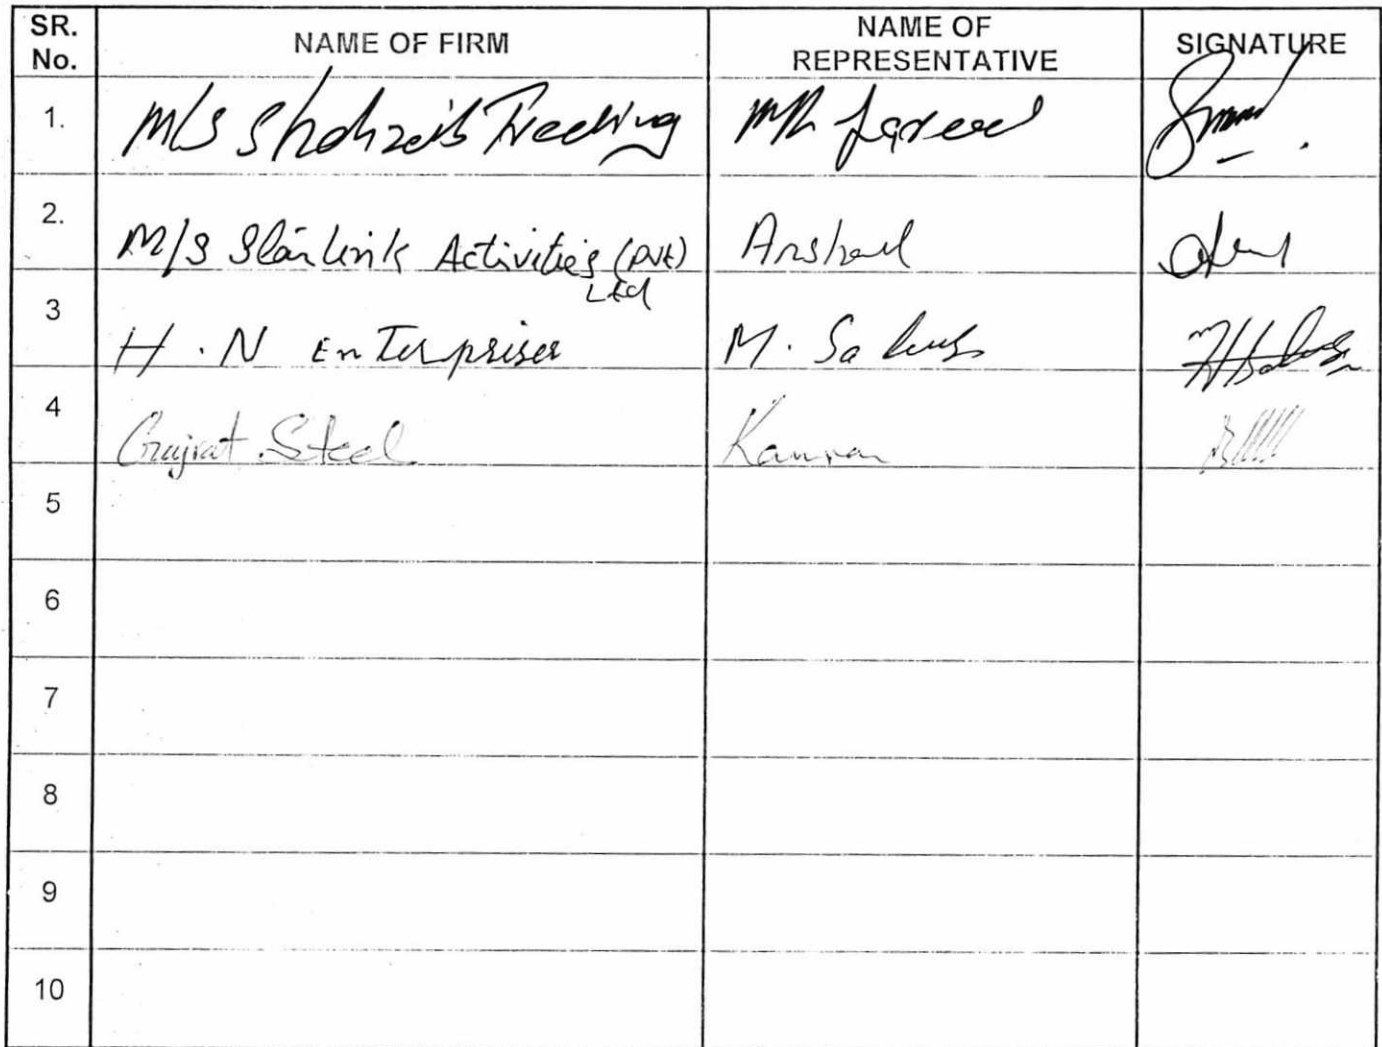 SR. No. NAME OF FIRM NAME OF REPRESENTATIVE SIGNATURE
1. M/S Shahzaib Trading MR Fareed
2. M/S Starlink Activities (Pvt) Ltd Arshad
3 H.N EnTerprises M.
4 Gujrat Steel Kamran
5
6
7
8
9
10